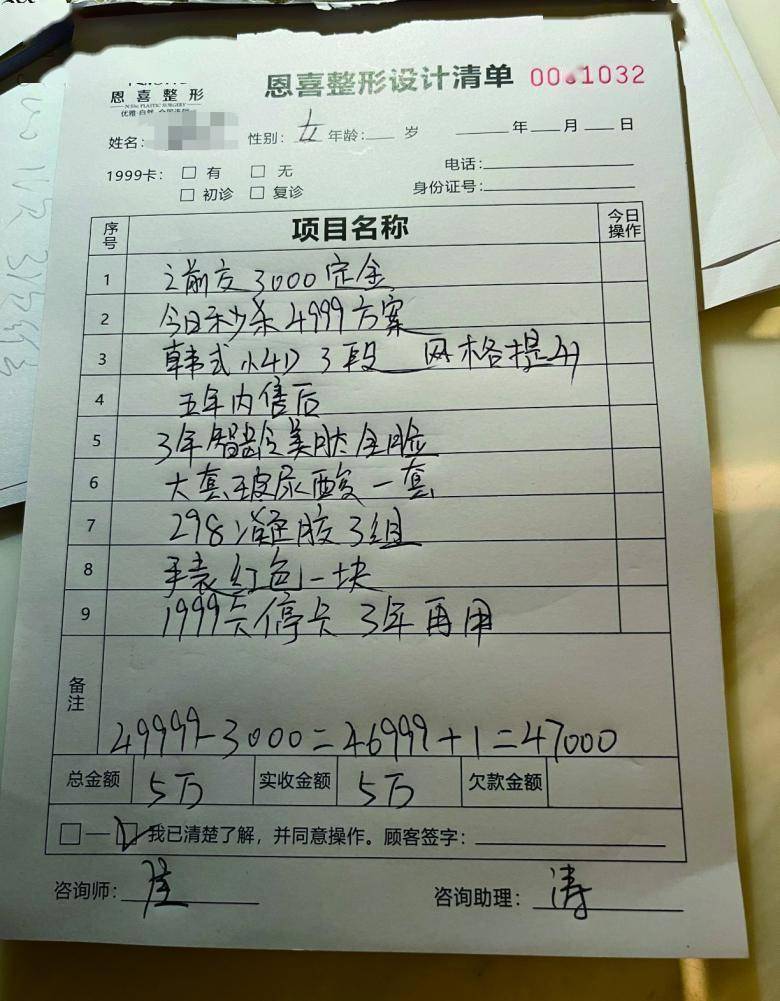 恩喜整形
优雅·自然
恩喜整形设计清单 00 1032
姓名: 性别: 女 年龄: 岁 年 月 日
1999卡: □ 有 □ 无 电话:
□ 初诊 □ 复诊 身份证号:
序号 项目名称 今日操作
1 之前交3000定金
2 今日秒杀4999方案
3 韩式小4D 3段 网格提升
4 五年内售后
5 3年智龄美肤全脸
6 大真玻尿酸一套
7 298 凝胶3组
8 手表红包一块
9 1999卡停卡3年再用
备注
49999-3000=46999+1=47000
总金额 5万 实收金额 5万 欠款金额
□—□ 我已清楚了解，并同意操作。顾客签字:
咨询师: 咨询助理: 涛